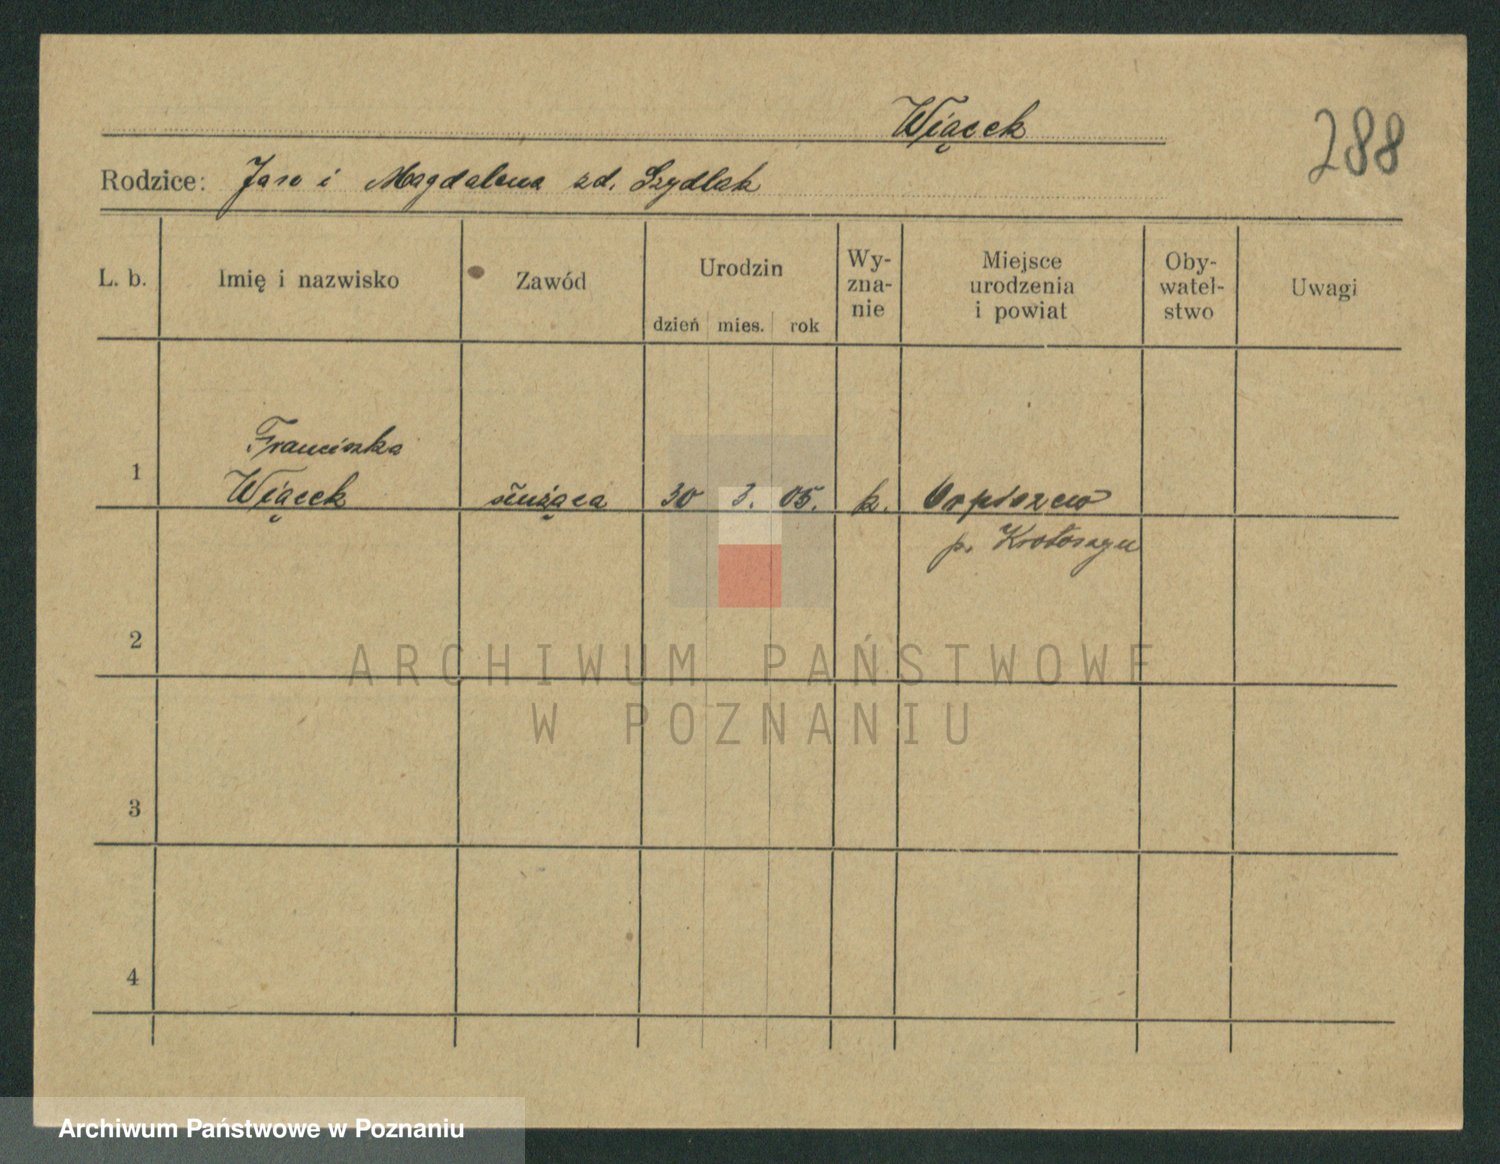 Wiącek
288
Rodzice: Jan i Magdalena zd. Szydlak
L. b.
Imię i nazwisko
Zawód
Urodzin
dzień mies. rok
Wy-
zna-
nie
Miejsce
urodzenia
i powiat
Oby-
watel-
stwo
Uwagi
1
Franciszka
Wiącek
służąca
30 3. 05.
k.
Orpiszew
p. Krotoszyn
2
3
4
ARCHIWUM PAŃSTWOWE
W POZNANIU
Archiwum Państwowe w Poznaniu